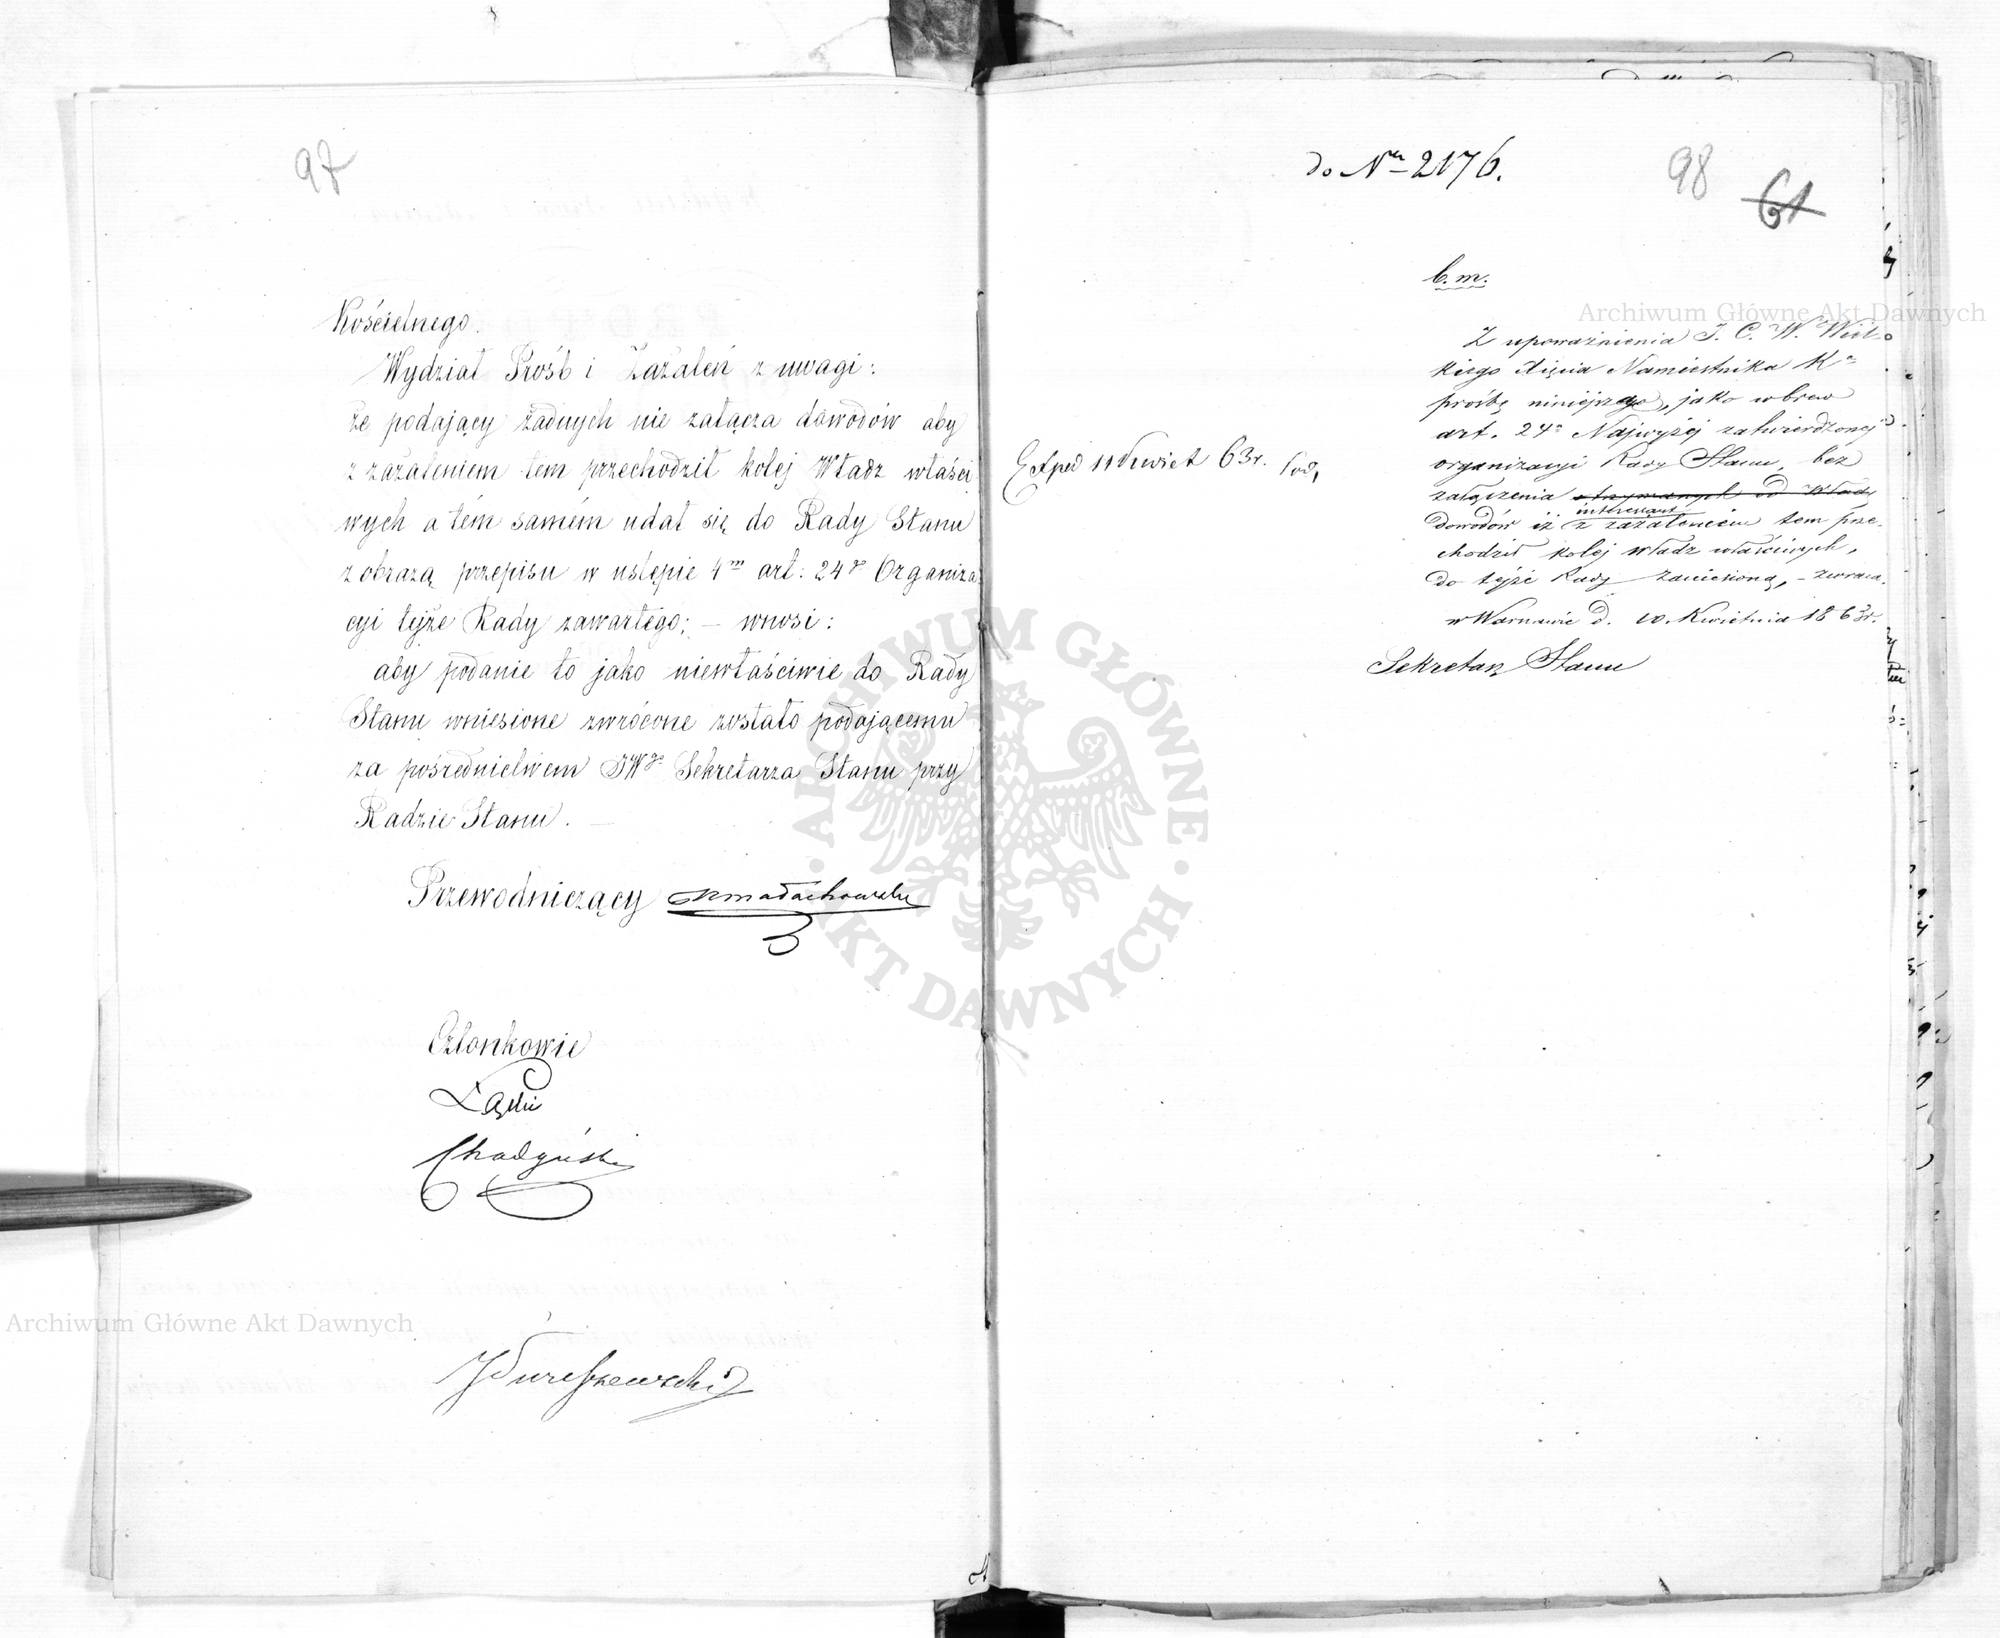 97
Kościelnego.
Wydział Próśb i Zażaleń z uwagi:
że podający żadnych nie załącza dowodów aby
z zażaleniem tem przechodził kolej Władz właści
wych a tém samém udał się do Rady Stanu
z obrazą przepisu w ustępie 4m art: 24go Organiza
cyi tejże Rady zawartego; — wnosi:
aby podanie to jako niewłaściwie do Rady
Stanu wniesione zwrócone zostało podającemu
za pośrednictwem JWgo Sekretarza Stanu przy
Radzie Stanu. —
Przewodniczący Małachowski
Członkowie
Łąski
Chądzyński
do Nru 2176.
98
61
b. m.
Z upoważnienia J. C. W. Wiel-
kiego Xięcia Namiestnika Ka
prośbę niniejszą, jako wbrew
art. 24o Najwyżej zatwierdzonej
organizacyi Rady Stanu, bez
załączenia otrzymanych od Władz
interesant
dowodów iż z zażaleniem tem prze-
chodził kolej władz właściwych,
do tejże Rady zaniesioną, – zwraca.
w Warszawie d. 10. Kwietnia 1863r.
Sekretarz Stanu
Exped 11 Kwiet 63r.
Archiwum Główne Akt Dawnych
Archiwum Główne Akt Dawnych
ARCHIWUM GŁÓWNE · AKT DAWNYCH ·